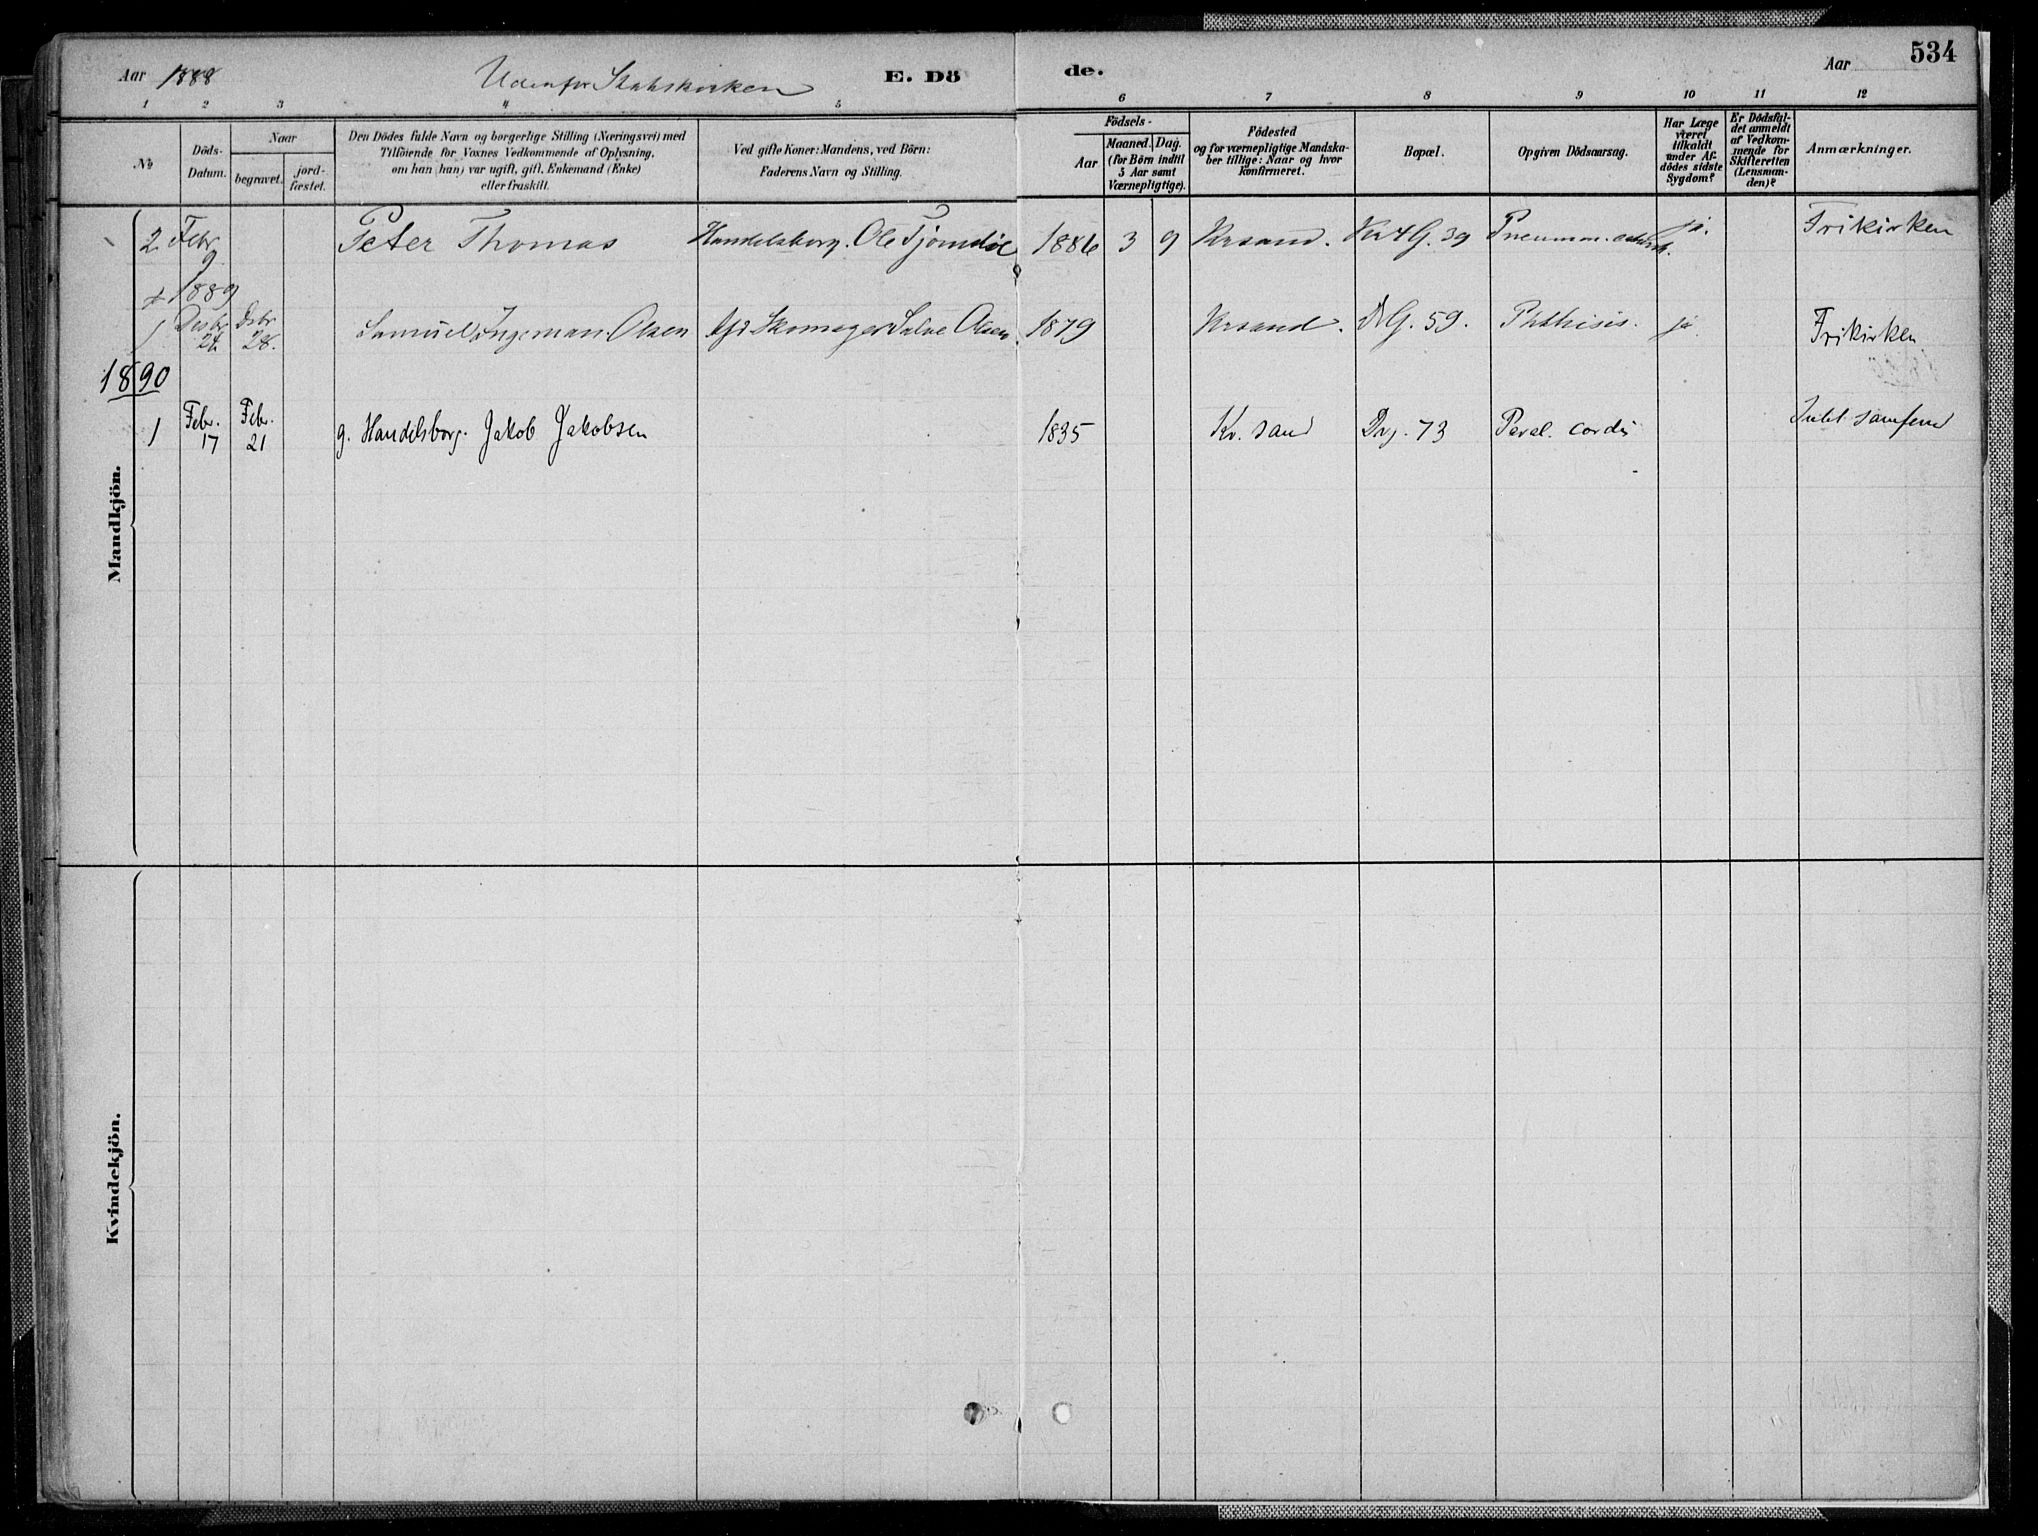 534
Aar 1888 Udenfor Statskirken E. Dö de. Aar
1 2 3 4 5 6 7 8 9 10 11 12
No
Döds-Datum.
Naar
begravet.
jord-fæstet.
Den Dödes fulde Navn og borgerlige Stilling (Næringsvei) med
Tilföiende for Voxnes Vedkommende af Oplysning,
om han (hun) var ugift, gift, Enkemand (Enke)
eller fraskilt.
Ved gifte Koner: Mandens, ved Börn:
Faderens Navn og Stilling.
Födsels-
Aar
Maaned. Dag.
(for Börn indtil
5 Aar samt
Værnepligtige).
Födested
og for værnepligtige Mandska-
ber tillige: Naar og hvor
Konfirmeret.
Bopæl.
Opgiven Dödsaarsag.
Har Læge
været
tilkaldt
under Af-
dödes sidste
Sygdom?
Er Dödsfal-
det anmeldt
af Vedkom-
mende for
Skifteretten
(Lensman-
den)?
Anmærkninger.
Mandkjön.
2 Febr. 9 Peter Thomas Handelsborg. Ole Tjomdöe 1886 3 9 Krsand. Kr 4 G. 39 Pneumon. ja. Frikirken
1889
1 Desbr 24 Dsbr 28. Samuel Ingeman Olsen Skomager Salve Olsen. 1879 Krsand. D.G. 59. Phthisis. ja Frikirken
1890
1 Febr. 17 Febr. 21 g. Handelsborg. Jakob Jakobsen 1835 Kr.sand Dg. 73 Paral. cordis samfund
Kvindekjön.